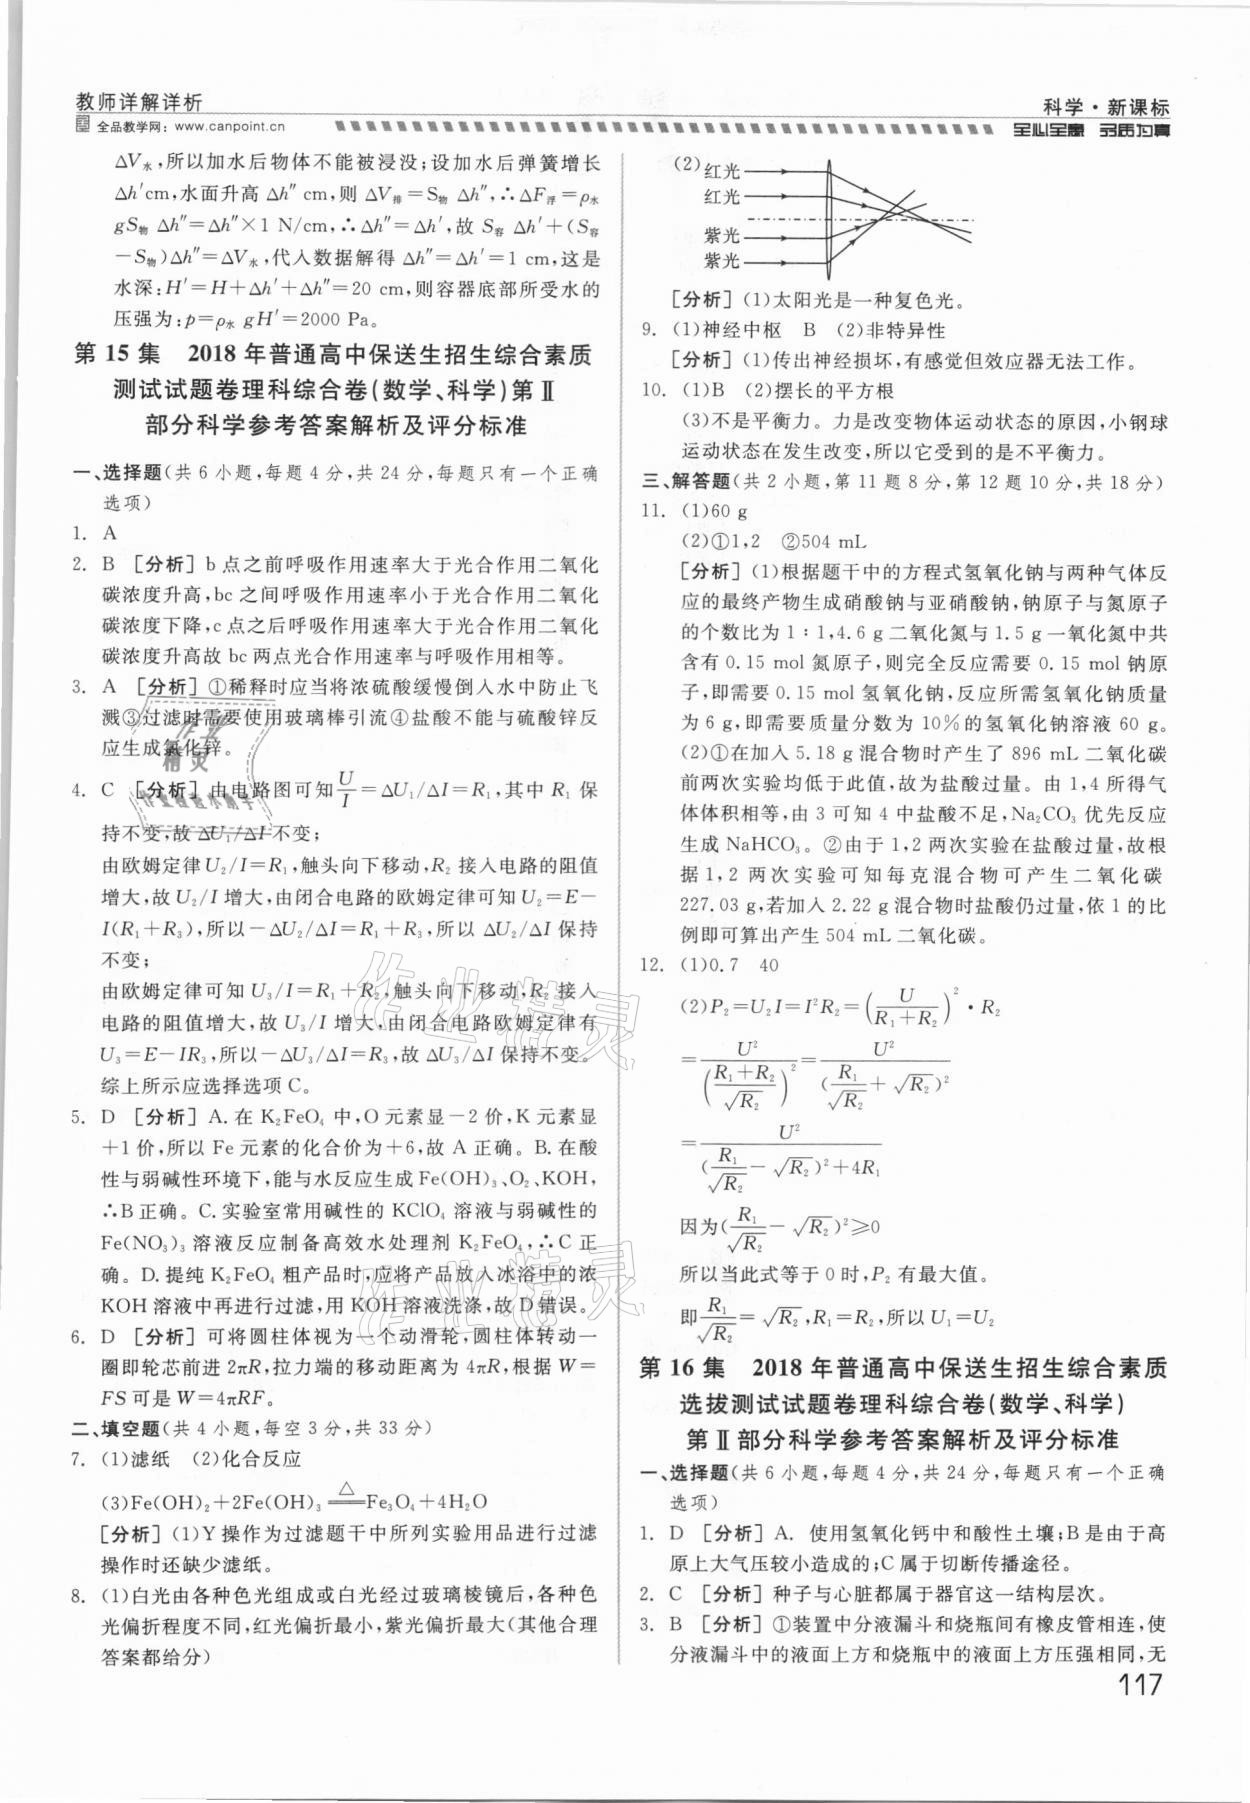 教师详解详析
全品教学网：www.canpoint.cn
科学·新课标
全心全意 名质为真
ΔV水,所以加水后物体不能被浸没;设加水后弹簧增长
Δh′cm,水面升高 Δh″ cm,则 ΔV排=S物 Δh″,∴ΔF浮=ρ水
gS物 Δh″=Δh″×1 N/cm,∴Δh″=Δh′,故 S容 Δh′+(S容
-S物)Δh″=ΔV水,代入数据解得 Δh″=Δh′=1 cm,这是
水深:H′=H+Δh′+Δh″=20 cm,则容器底部所受水的
压强为:p=ρ水 gH′=2000 Pa。
第 15 集 2018 年普通高中保送生招生综合素质
测试试题卷理科综合卷(数学、科学)第Ⅱ
部分科学参考答案解析及评分标准
一、选择题(共 6 小题,每题 4 分,共 24 分,每题只有一个正确
选项)
1. A
2. B [分析] b 点之前呼吸作用速率大于光合作用二氧化
碳浓度升高,bc 之间呼吸作用速率小于光合作用二氧化
碳浓度下降,c 点之后呼吸作用速率大于光合作用二氧化
碳浓度升高故 bc 两点光合作用速率与呼吸作用相等。
3. A [分析] ①稀释时应当将浓硫酸缓慢倒入水中防止飞
溅③过滤时需要使用玻璃棒引流④盐酸不能与硫酸锌反
应生成氯化锌。
4. C [分析] 由电路图可知U/I=ΔU₁/ΔI=R₁,其中 R₁ 保
持不变,故 ΔU₁/ΔI 不变;
由欧姆定律 U₂/I=R₁,触头向下移动,R₂ 接入电路的阻值
增大,故 U₂/I 增大,由闭合电路的欧姆定律可知 U₂=E-
I(R₁+R₃),所以-ΔU₂/ΔI=R₁+R₃,所以 ΔU₂/ΔI 保持
不变;
由欧姆定律可知 U₃/I=R₁+R₂,触头向下移动,R₂ 接入
电路的阻值增大,故 U₃/I 增大,由闭合电路欧姆定律有
U₃=E-IR₃,所以-ΔU₃/ΔI=R₃,故 ΔU₃/ΔI 保持不变。
综上所示应选择选项 C。
5. D [分析] A.在 K₂FeO₄ 中,O 元素显-2 价,K 元素显
+1 价,所以 Fe 元素的化合价为+6,故 A 正确。B.在酸
性与弱碱性环境下,能与水反应生成 Fe(OH)₃、O₂、KOH,
∴B 正确。C.实验室常用碱性的 KClO₄ 溶液与弱碱性的
Fe(NO₃)₃ 溶液反应制备高效水处理剂 K₂FeO₄,∴C 正
确。D.提纯 K₂FeO₄ 粗产品时,应将产品放入冰浴中的浓
KOH 溶液中再进行过滤,用 KOH 溶液洗涤,故 D 错误。
6. D [分析] 可将圆柱体视为一个动滑轮,圆柱体转动一
圈即轮芯前进 2πR,拉力端的移动距离为 4πR,根据 W=
FS 可是 W=4πRF。
二、填空题(共 4 小题,每空 3 分,共 33 分)
7. (1)滤纸 (2)化合反应
(3)Fe(OH)₂+2Fe(OH)₃ ≜ Fe₃O₄+4H₂O
[分析] (1)Y 操作为过滤题干中所列实验用品进行过滤
操作时还缺少滤纸。
8. (1)白光由各种色光组成或白光经过玻璃棱镜后,各种色
光偏折程度不同,红光偏折最小,紫光偏折最大(其他合理
答案都给分)
(2)红光
红光
紫光
紫光
[分析] (1)太阳光是一种复色光。
9. (1)神经中枢 B (2)非特异性
[分析] (1)传出神经损坏,有感觉但效应器无法工作。
10. (1)B (2)摆长的平方根
(3)不是平衡力。力是改变物体运动状态的原因,小钢球
运动状态在发生改变,所以它受到的是不平衡力。
三、解答题(共 2 小题,第 11 题 8 分,第 12 题 10 分,共 18 分)
11. (1)60 g
(2)①1,2 ②504 mL
[分析] (1)根据题干中的方程式氢氧化钠与两种气体反
应的最终产物生成硝酸钠与亚硝酸钠,钠原子与氮原子
的个数比为 1∶1,4.6 g 二氧化氮与 1.5 g 一氧化氮中共
含有 0.15 mol 氮原子,则完全反应需要 0.15 mol 钠原
子,即需要 0.15 mol 氢氧化钠,反应所需氢氧化钠质量
为 6 g,即需要质量分数为 10%的氢氧化钠溶液 60 g。
(2)①在加入 5.18 g 混合物时产生了 896 mL 二氧化碳
前两次实验均低于此值,故为盐酸过量。由 1,4 所得气
体体积相等,由 3 可知 4 中盐酸不足,Na₂CO₃ 优先反应
生成 NaHCO₃。②由于 1,2 两次实验在盐酸过量,故根
据 1,2 两次实验可知每克混合物可产生二氧化碳
227.03 g,若加入 2.22 g 混合物时盐酸仍过量,依 1 的比
例即可算出产生 504 mL 二氧化碳。
12. (1)0.7 40
(2)P₂=U₂I=I²R₂=(U/(R₁+R₂))²·R₂
=U²/((R₁+R₂)/√R₂)²=U²/(R₁/√R₂+√R₂)²
=U²/((R₁/√R₂-√R₂)²+4R₁)
因为(R₁/√R₂-√R₂)²≥0
所以当此式等于 0 时,P₂ 有最大值。
即R₁/√R₂=√R₂,R₁=R₂,所以 U₁=U₂
第 16 集 2018 年普通高中保送生招生综合素质
选拔测试试题卷理科综合卷(数学、科学)
第Ⅱ部分科学参考答案解析及评分标准
一、选择题(共 6 小题,每题 4 分,共 24 分,每题只有一个正确
选项)
1. D [分析] A. 使用氢氧化钙中和酸性土壤;B 是由于高
原上大气压较小造成的;C 属于切断传播途径。
2. C [分析] 种子与心脏都属于器官这一结构层次。
3. B [分析] ①装置中分液漏斗和烧瓶间有橡皮管相连,使
分液漏斗中的液面上方和烧瓶中的液面上方压强相同,无
117
作业精灵
作业精灵